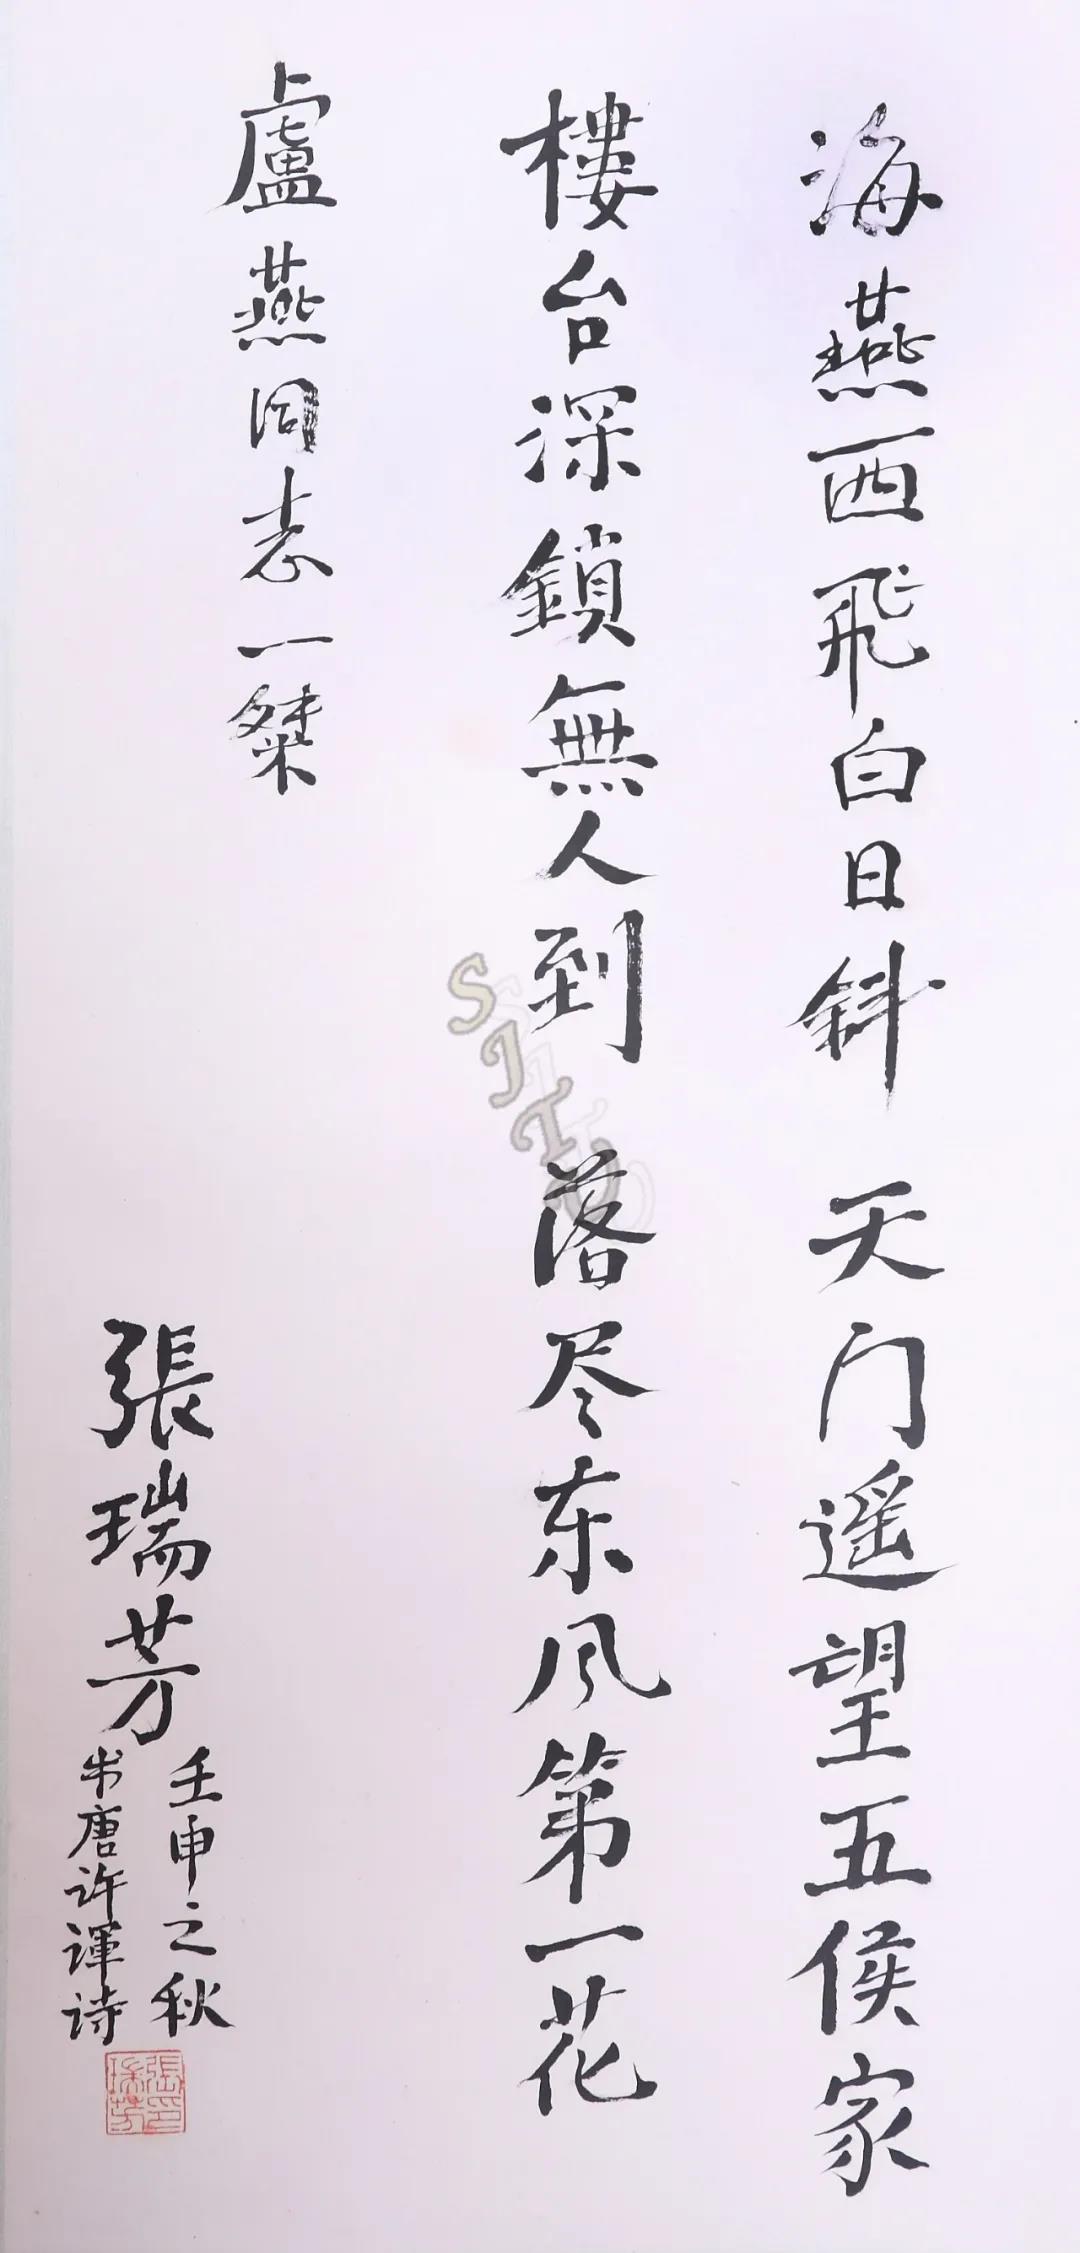 海燕西飛白日斜 天门遥望五侯家
樓台深鎖無人到 落尽东风第一花
盧燕同志一粲
張瑞芳
壬申之秋
书唐许渾诗
張瑞芳印
SITU